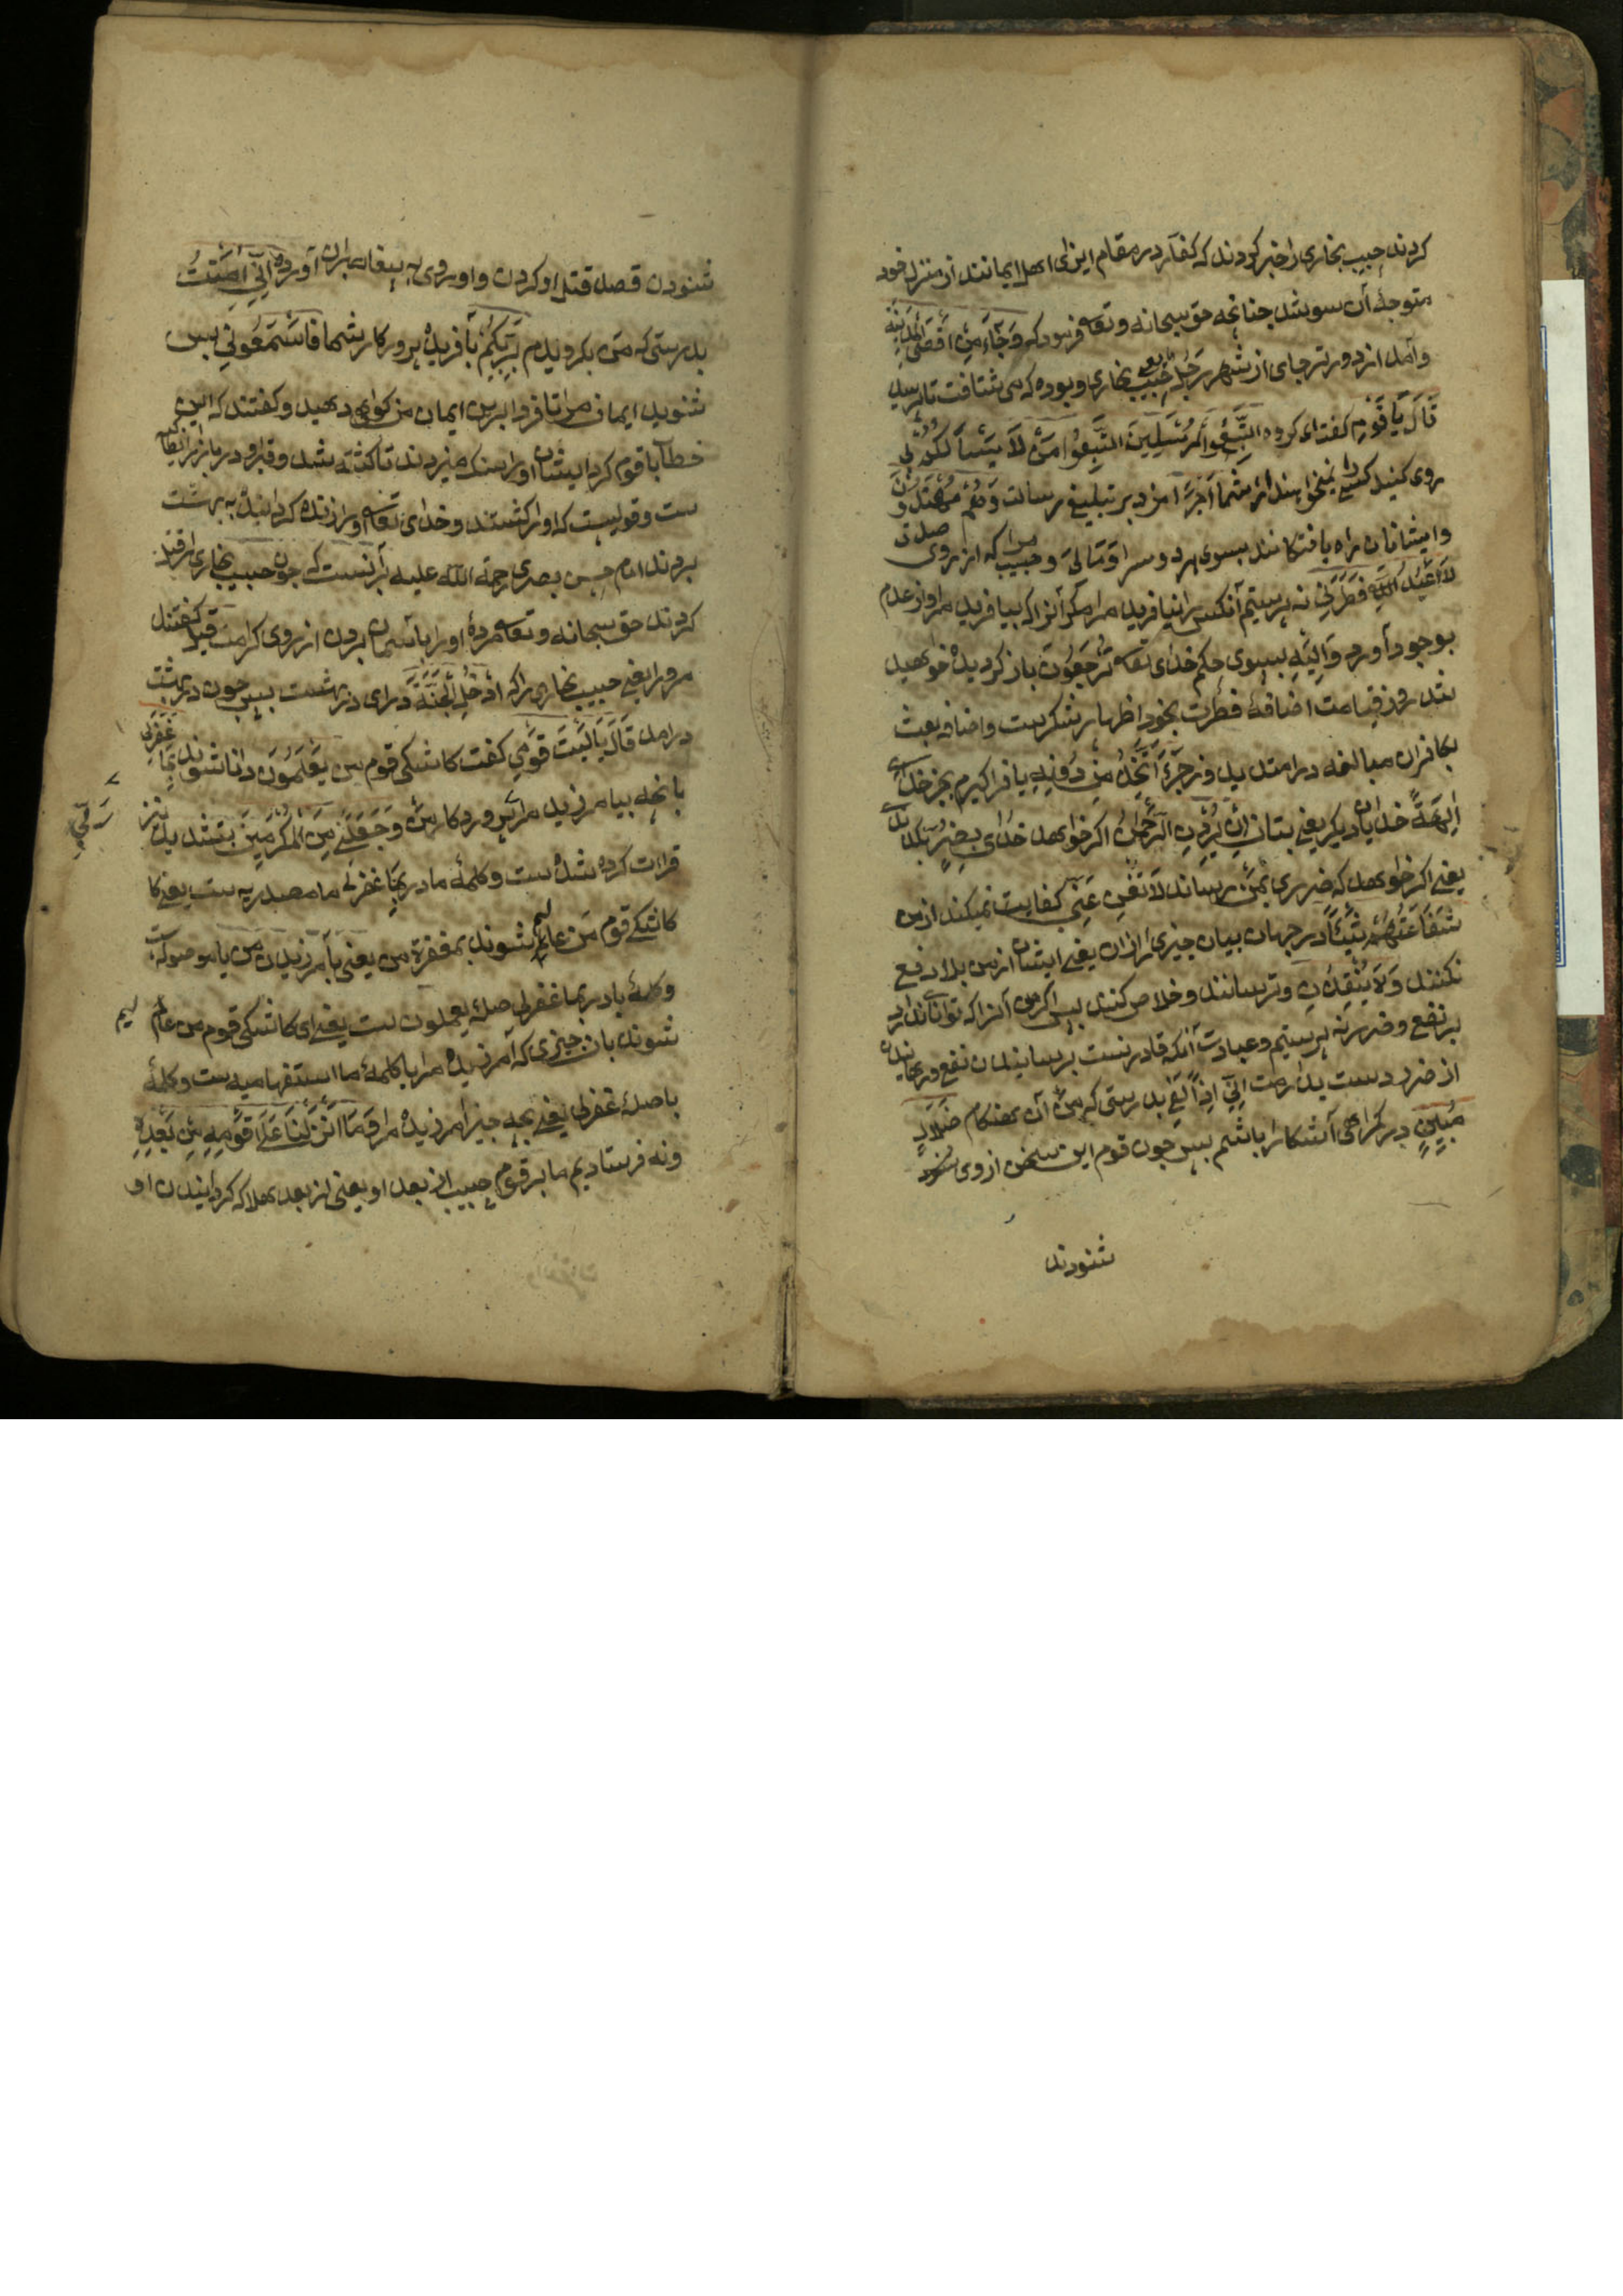 کردند حبیب نجاری را خبر کردند که کفار در مقام ایزای اهل ایمانند از منزل خود
متوجهٔ آن سو شد چنانچه حق سبحانه وتعالی فرمود که وَجَاءَ مِنْ أَقْصَى الْمَدِينَةِ
وآمد از دورتر جای از شهر رَجُلٌ یعنی حبیب نجاری و بوده که می شتافت تا رسید
قَالَ يَا قَوْمِ کفت ای کروه اتَّبِعُوا الْمُرْسَلِينَ اتَّبِعُوا مَنْ لَا يَسْأَلُكُمْ
روی کنید کسی را نمیخواهند از شما أَجْرًا مزد بر تبلیغ رسالت وَهُمْ مُهْتَدُونَ
وایشانان راه یافتکانند بسوی هر دو سرا وَمَا لِيَ و حبیب مرا که از روی صدق
لَا أَعْبُدُ الَّذِي فَطَرَنِي نه پرستیم آنکس را نیافرید مرا مکر آنرا که بیافرید مرا واز عدم
بوجود آورد وَإِلَيْهِ بسوی حکم خدای تعالی تُرْجَعُونَ باز کردیده خواهید
شد روز قیامت اضافهٔ فطرت بخود اظهار شکرست واضافه بعث
بکافران مبالغه در امتدید و زجر أَأَتَّخِذُ مِنْ دُونِهِ یا فرا کیرم بجز خدای
آلِهَةً خدایان دیکر یعنی بتان إِنْ يُرِدْنِ الرَّحْمَنُ اکر خواهد خدای بِضُرٍّ
یعنی اکر خواهد که ضرری بمن رساند لَا تُغْنِ عَنِّي کفایت نمیکند از من
شَفَاعَتُهُمْ شَيْئًا در جهان بیان چیزی را ازان یعنی ایشان از من بلا دفع
نکنند وَلَا يُنْقِذُونِ و نرسانند وخلاص کنند پس اکر من آنرا که توانا
بر نفع و ضرر نه پرستیم وعبادت آنکه قادر نست برسانیدن نفع
از ضرر دست بدارمت إِنِّي إِذًا لَفِي بدرستی که من آن هنکام ضَلَالٍ
مُبِينٍ در کمراهی آشکارا باشم پس چون قوم این سخن از وی شنود
شنودند
شنودن قصد قتل او کردن و او روی به پیغامبران آورده إِنِّي آمَنْتُ
بدرستی که من بکرویدم بِرَبِّكُمْ بآفریده پرورکار شما فَاسْمَعُونِ پس
شنوید ایمان مرا تا فردا برین ایمان من کواهی دهید وکفتند که این
خطاب با قوم کرد ایشان اورا سنک میزدند تا کشته شد وقبر او در بازار انطاکیه
ست وقولیست که اورا کشتند وخدای تعالی اورا زنده کردانیده به بهشت
بردند امام حسن بصری رحمة الله علیه برآنست که چون حبیب نجاری را قتل
کردند حق سبحانه وتعالی مردهٔ اورا باسمان بردن از روی کرامت قِيلَ کفتند
مرورا یعنی حبیب نجاری را که ادْخُلِ الْجَنَّةَ درای در بهشت پس چون در بهشت
درامد قَالَ يَا لَيْتَ قَوْمِي کفت کاشکی قوم من يَعْلَمُونَ دانا شوند بِمَا غَفَرَ لِي
بانچه بیامرزید مرا پروردکار من وَجَعَلَنِي مِنَ الْمُكْرَمِينَ بتشدید نیز
رَبِّي
قراءت کرده شده ست وکلمهٔ ما در بما غفر لی ما مصدریه ست یعنی کا
کاشکی قوم من عالم شوند بمغفرة من یعنی بآمرزیدن من یا موصوله
وکلمهٔ با در بما غفر لی صلهٔ یعلمون ست یعنی ای کاشکی قوم من عالم
شوند بان چیزی که آمرزیده مرا یا کلمهٔ ما استفهامیه ست وکلمهٔ
با صلهٔ غفر لی یعنی بچه چیز امرزیده مرا وَمَا أَنْزَلْنَا عَلَى قَوْمِهِ مِنْ بَعْدِهِ
ونه فرستادیم ما بر قوم حبیب از بعد او یعنی از بعد هلاک کردانیدن او